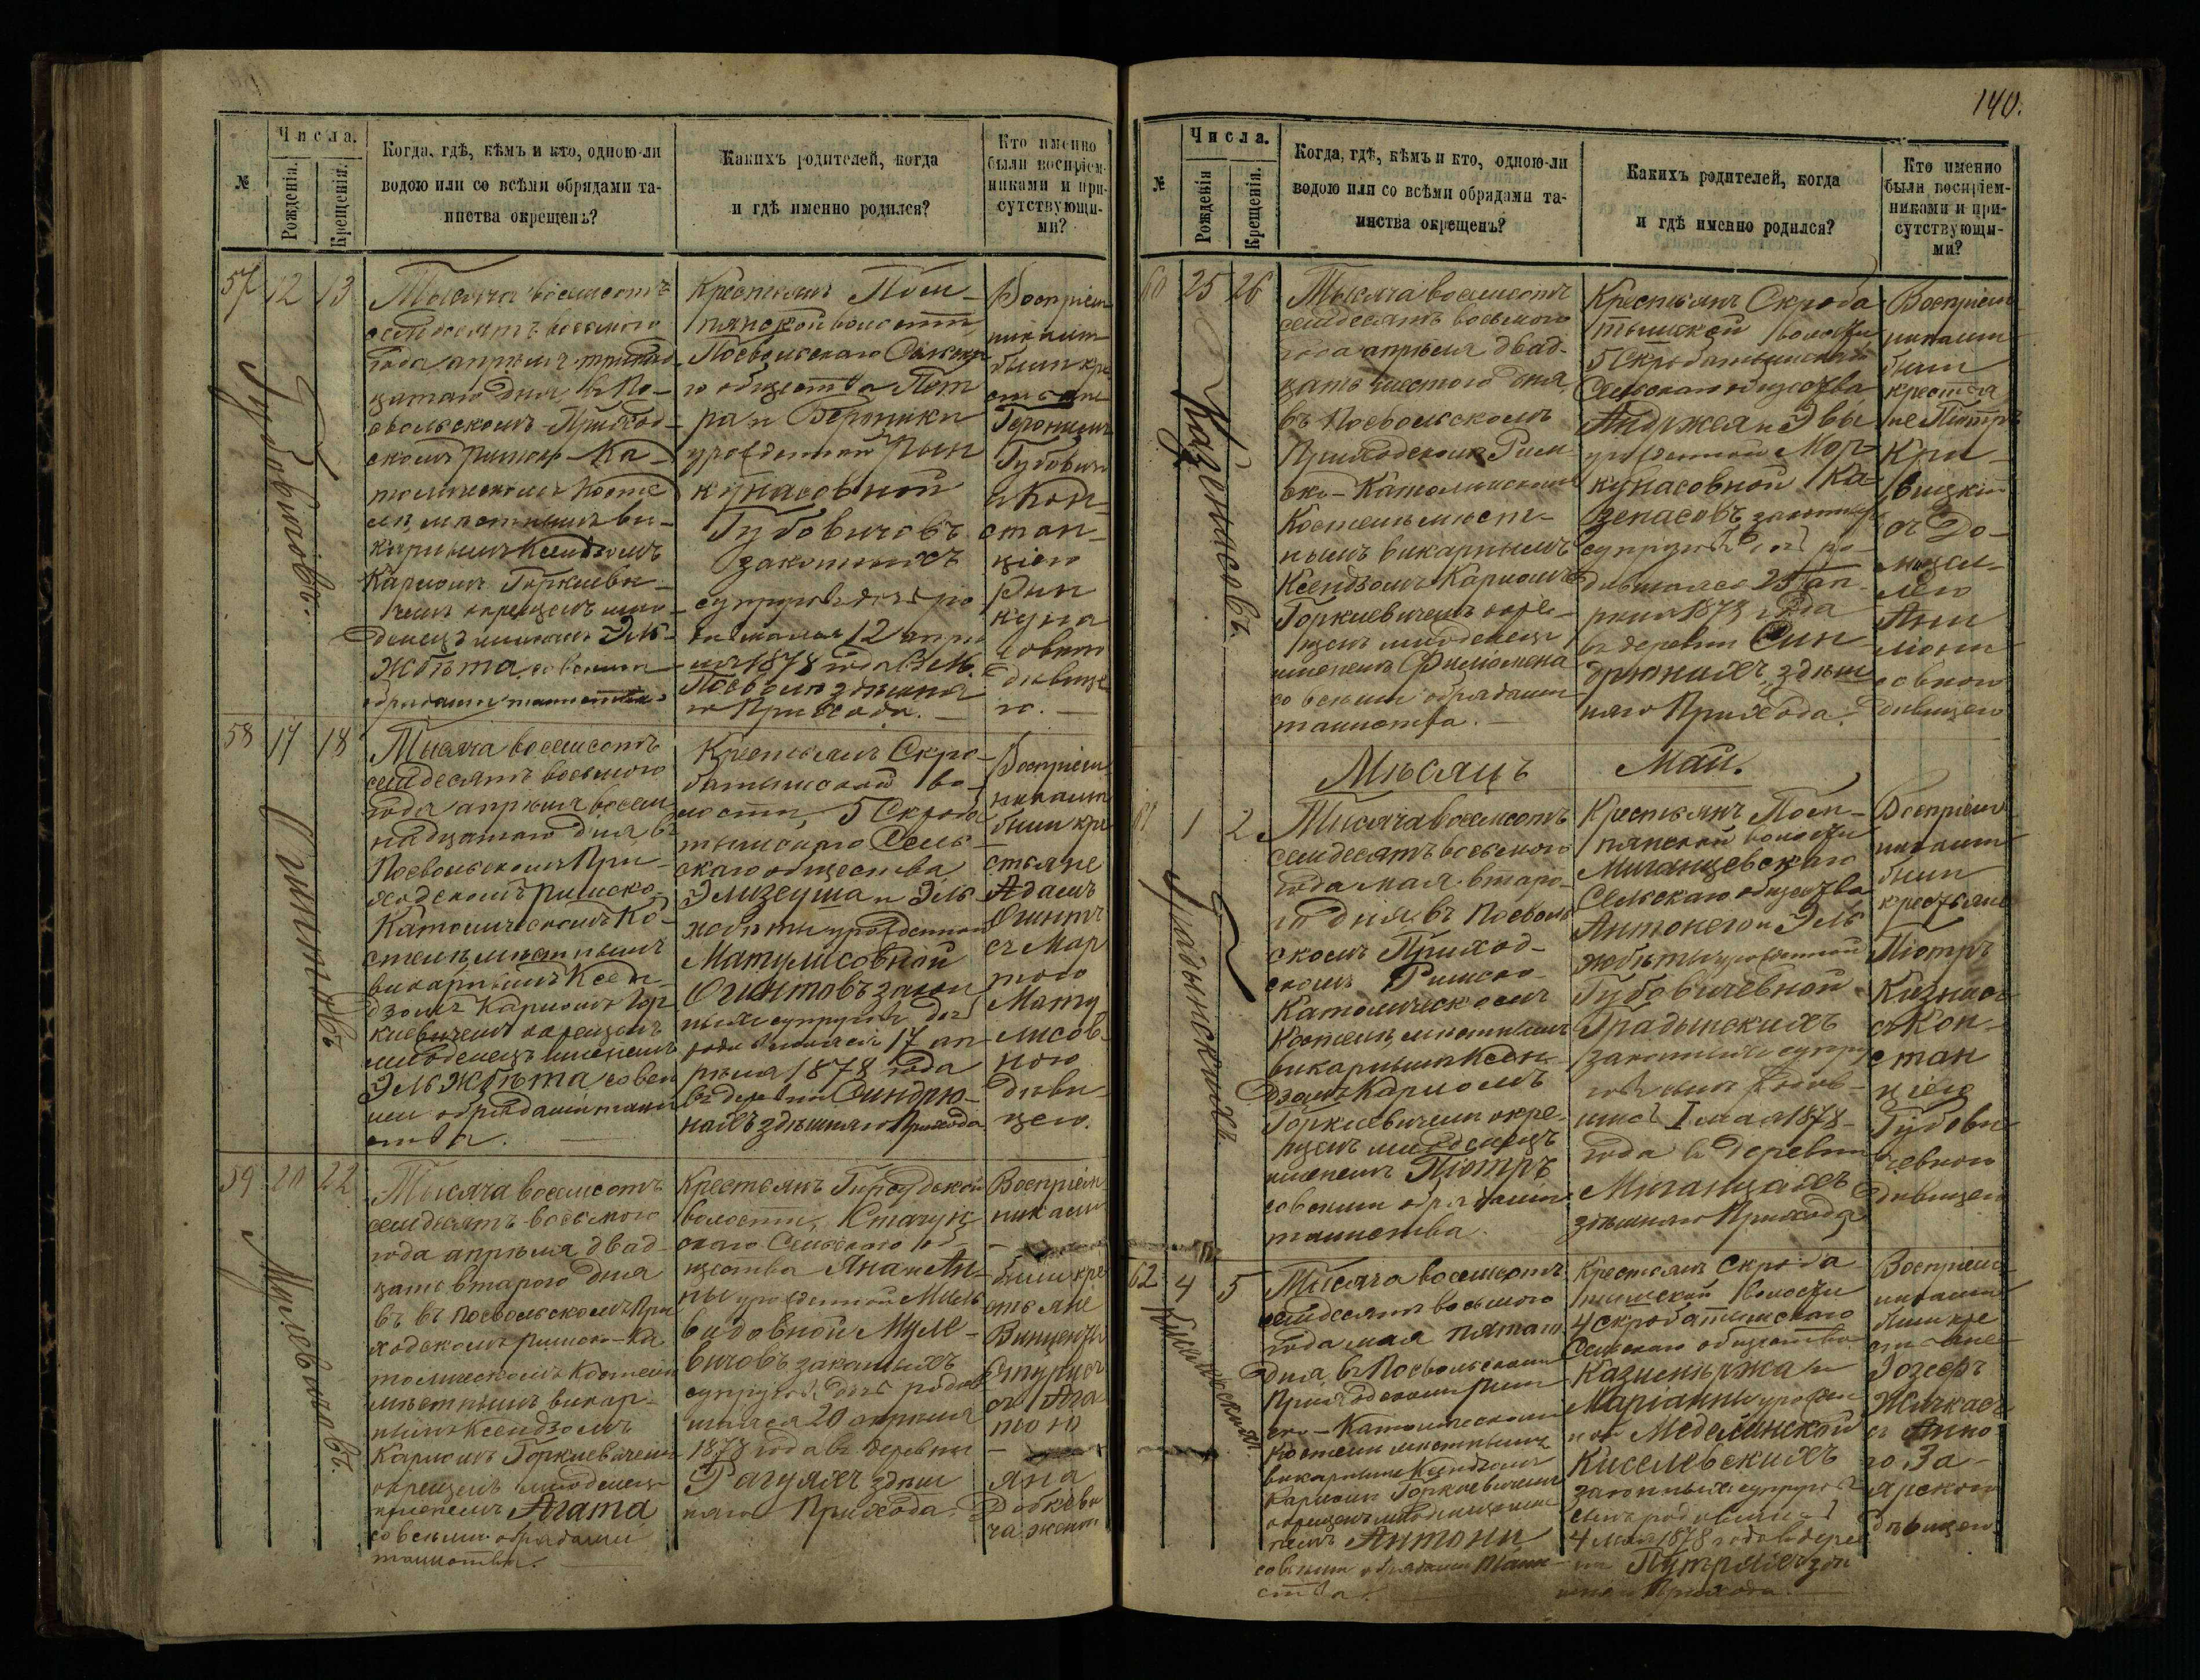 Числа.
№
Рожденія.
Крещенія.
Когда, гдѣ, кѣмъ и кто, одною-ли
водою или со всѣми обрядами та-
инства окрещенъ?
Какихъ родителей, когда
и гдѣ именно родился?
Кто именно
были воспріем-
никами и при-
сутствующи-
ми?
57
12
13
Тысяча восемсотъ
семдесятъ восьмого
года апрѣля тринад-
цатаго дня въ По-
свольскомъ Приход-
скомъ Римско-Ка-
толическомъ Косте-
лѣ мѣстнымъ ви-
карнымъ Ксендзомъ
Каролемъ Горкеви-
чемъ окрещенъ мла-
денецъ именемъ Эль-
жбѣта со всѣми
обрядами таинства.
Крестьянъ Помп-
янской волости
Посвольскаго Сельска-
го общества Пет-
ра и Вероники
урожденной
Губовичовъ
законныхъ
супруговъ дочь ро
дившаяся 12 апрѣ
ля 1878 года въ М.
Посволѣ здѣшня
го Прихода.
Воспріем
никами
были кре
стьяне
Геронимъ
Губовичъ
съ Кон-
стан-
ціею
дѣвице
ю.
58
17
18
Огинтовъ.
Тысяча восемсотъ
семдесятъ восьмого
года апрѣля восем
надцатаго дня въ
Посвольскомъ При-
ходскомъ Римско-
Католическомъ Ко-
стелѣ мѣстнымъ
викарнымъ Ксен-
дзомъ Каролемъ Гор
кевичемъ окрещенъ
младенецъ именемъ
Эльжбѣта со всѣ
ми обрядами таин
ства.
Крестьянъ Скро-
батишской во-
лости, 5 Скроба
тишскаго Сель-
скаго общества
Элизеуша и Эль-
жбѣты урожденной
Матулисовной
Огинтовъ закон
ныхъ супруговъ дочь
родившаяся 17 ап-
рѣля 1878 года
въ деревнѣ Синдрю-
нахъ здѣшняго Прихода
Воспріем
никами
были кре
стьяне
Адамъ
Огинтъ
съ Мар
тою
Мату
лисов-
ною
дѣви-
цею.
59
20
22
Тысяча восемсотъ
семдесятъ восьмого
года апрѣля двад-
цать втарого дня
въ въ Посвольскомъ При
ходскомъ Римско-Ка
толическомъ Костелѣ
мѣстнымъ викар-
нымъ Ксендзомъ
Каролемъ Горкевичемъ
окрещенъ младенецъ
именемъ Агата
со всѣми обрядами
таинства.
Крестьянъ
волости,
скаго Сельскаго об-
щества Яна и Ан-
ны урожденной
законныхъ
супруговъ дочь родив
шаяся 20 апрѣля
1878 года въ деревнѣ
здѣш
няго Прихода.
Воспріем
никами
были кре
стьяне
Винцентъ
съ Ага
тою
Яна
женою
140.
Числа.
№
Рожденія
Крещенія.
Когда, гдѣ, кѣмъ и кто, одною-ли
водою или со всѣми обрядами та-
инства окрещенъ?
Какихъ родителей, когда
и гдѣ именно родился?
Кто именно
были воспріем-
никами и при-
сутствующи-
ми?
60
25
26
Казенасовъ.
Тысяча восемсотъ
семдесятъ восьмого
года апрѣля двад-
цать шестого дня
въ Посвольскомъ
Приходскомъ Рим-
ско-Католическомъ
Костелѣ мѣст-
нымъ викарнымъ
Ксендзомъ Каролемъ
Горкевичемъ окре-
щенъ младенецъ
именемъ Филомена
со всѣми обрядами
таинства.
Крестьянъ Скроба
тишской волости
5 Скробатишскаго
Сельскаго общества
Андржея и Эвы
урожденной Мор-
кунасовной Ка-
зенасовъ законныхъ
супруговъ дочь ро-
дившаяся 25 ап-
рѣля 1878 года
въ деревнѣ Син
дрюнахъ здѣш
няго Прихода.
Воспріем
никами
были
крестья
не Пётръ
Кри-
вицкій
съ До-
мицел-
лею
дѣвицею
Мѣсяцъ Май.
61
1
2
Градынскихъ
Тысяча восемсотъ
семдесятъ восьмого
года мая втаро-
го дня въ Посволь
скомъ Приход-
скомъ Римско-
Католическомъ
Костелѣ мѣстнымъ
викарнымъ Ксен-
дзомъ Каролемъ
Горкевичемъ окре-
щенъ младенецъ
именемъ Піотръ
со всѣми обрядами
таинства.
Крестьянъ Помп-
янской волости
Миганцевскаго
Сельскаго общества
Антонего и Эль
жбѣты урожденной
Губовичевной
Градынскихъ
законныхъ супру
говъ сынъ родив-
шійся 1 мая 1878
года въ деревнѣ
Миганцахъ
здѣшняго Прихода
Воспріем
никами
были
крестьяне
Піотръ
съ Кон-
стан
ціею
Губови
чевною
дѣвицею
62
4
5
Тысяча восемсотъ
семдесятъ восьмого
года мая пятаго
дня въ Посвольскомъ
Приходскомъ Рим
ско-Католическомъ
Костелѣ мѣстнымъ
викарнымъ Ксендзомъ
Каролемъ Горкевичемъ
окрещенъ младенецъ име
немъ Антони
со всѣми обрядами таин-
ства.
Крестьянъ Скроба
тишской волости
4 Скробатишскаго
Сельскаго общества
Казимержа и
Маріанны урожден
ной Меделинской
Киселевскихъ
законныхъ супруговъ
сынъ родившійся
4 мая 1878 года въ дерев
нѣ здѣ
шняго Прихода.
Воспріем
никами
были кре
стьяне
Іозефъ
съ Анно
ю За-
ярскою
дѣвицею